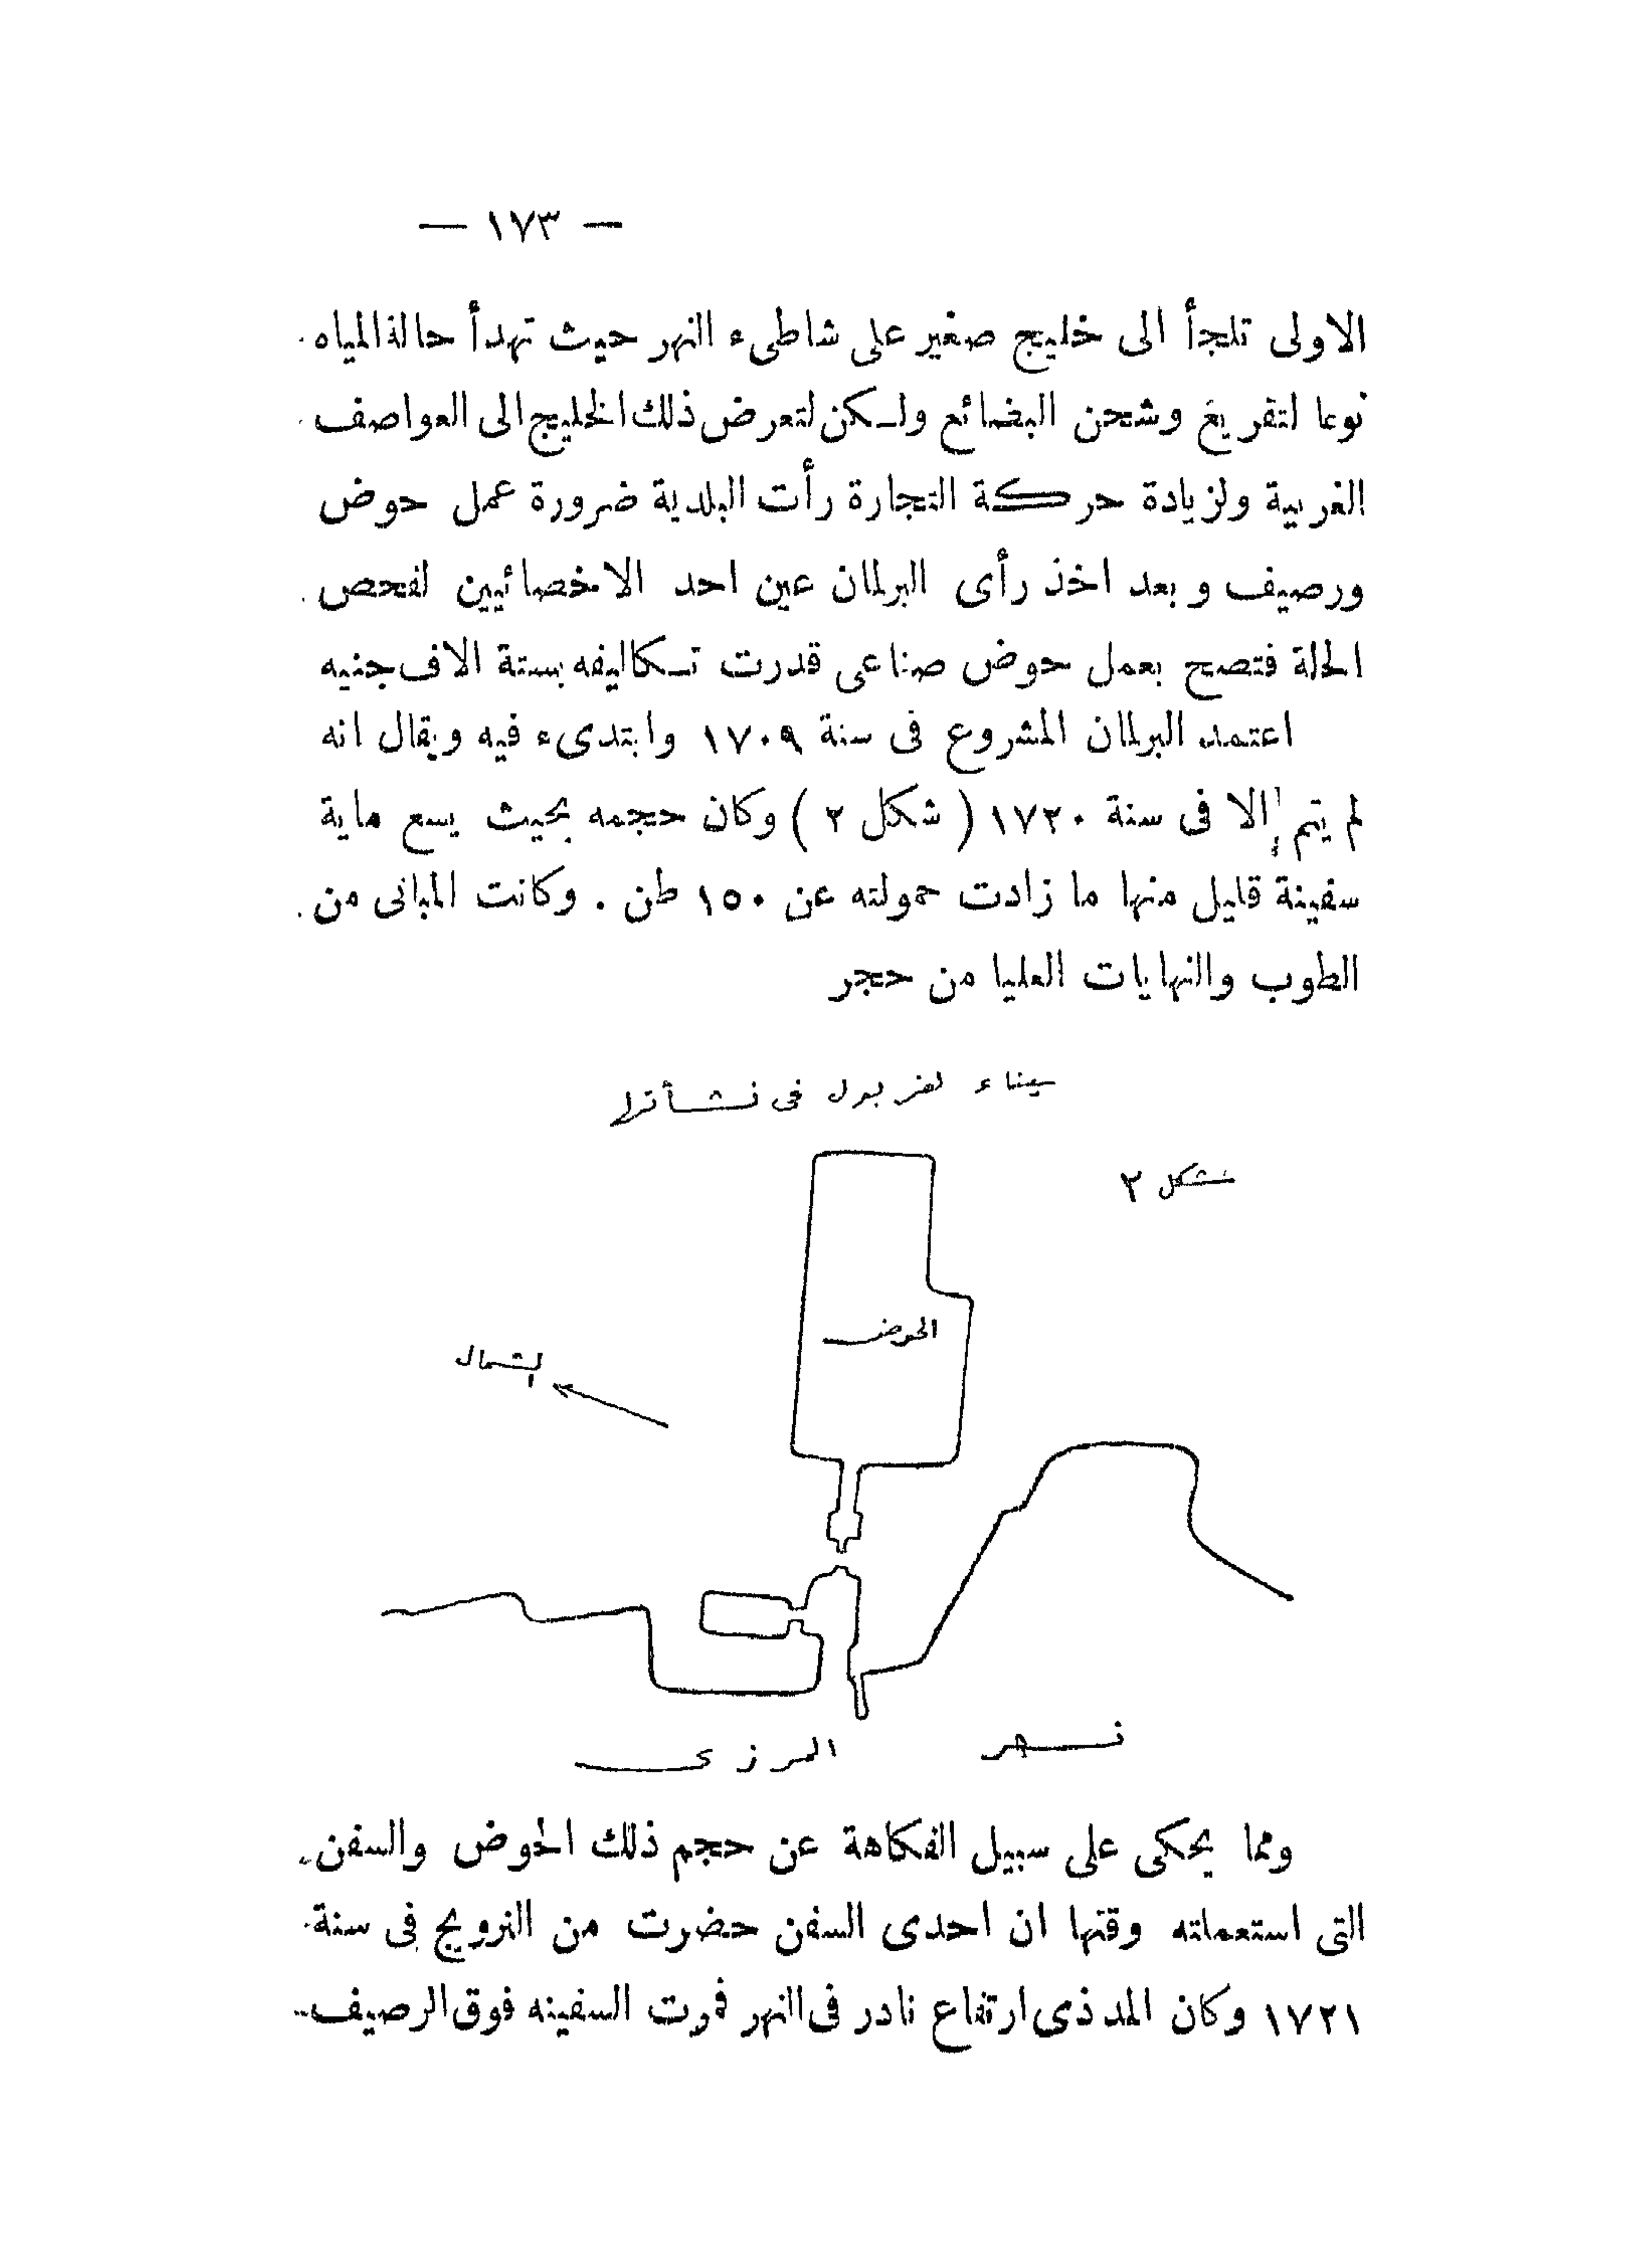 — ١٧٣ —
الاولى تلجأ الى خليج صغير على شاطىء النهر حيث تهدأ حالة المياه
نوعا لتفريغ وشحن البضائع ولكن لتعرض ذلك الخليج الى العواصف
الغربية ولزيادة حركة التجارة رأت البلدية ضرورة عمل حوض
ورصيف وبعد اخذ رأى البرلمان عين احد الاخصائيين لفحص
الحالة فنصح بعمل حوض صناعى قدرت تكاليفه بستة الاف جنيه
اعتمد البرلمان المشروع فى سنة ١٧٠٩ وابتدىء فيه ويقال انه
لم يتم إلا فى سنة ١٧٢٠ ( شكل ٢ ) وكان حجمه بحيث يسع ماية
سفينة قليل منها ما زادت حمولته عن ١٥٠ طن . وكانت المبانى من
الطوب والنهايات العليا من حجر
ميناء لفربول فى نشأتها
شكل ٢
الحوض
الشمال
نهر المرزى
ومما يحكى على سبيل الفكاهة عن حجم ذلك الحوض والسفن
التى استعملته وقتها ان احدى السفن حضرت من النرويج فى سنة
١٧٢١ وكان المد ذى ارتفاع نادر فى النهر فمرت السفينه فوق الرصيف